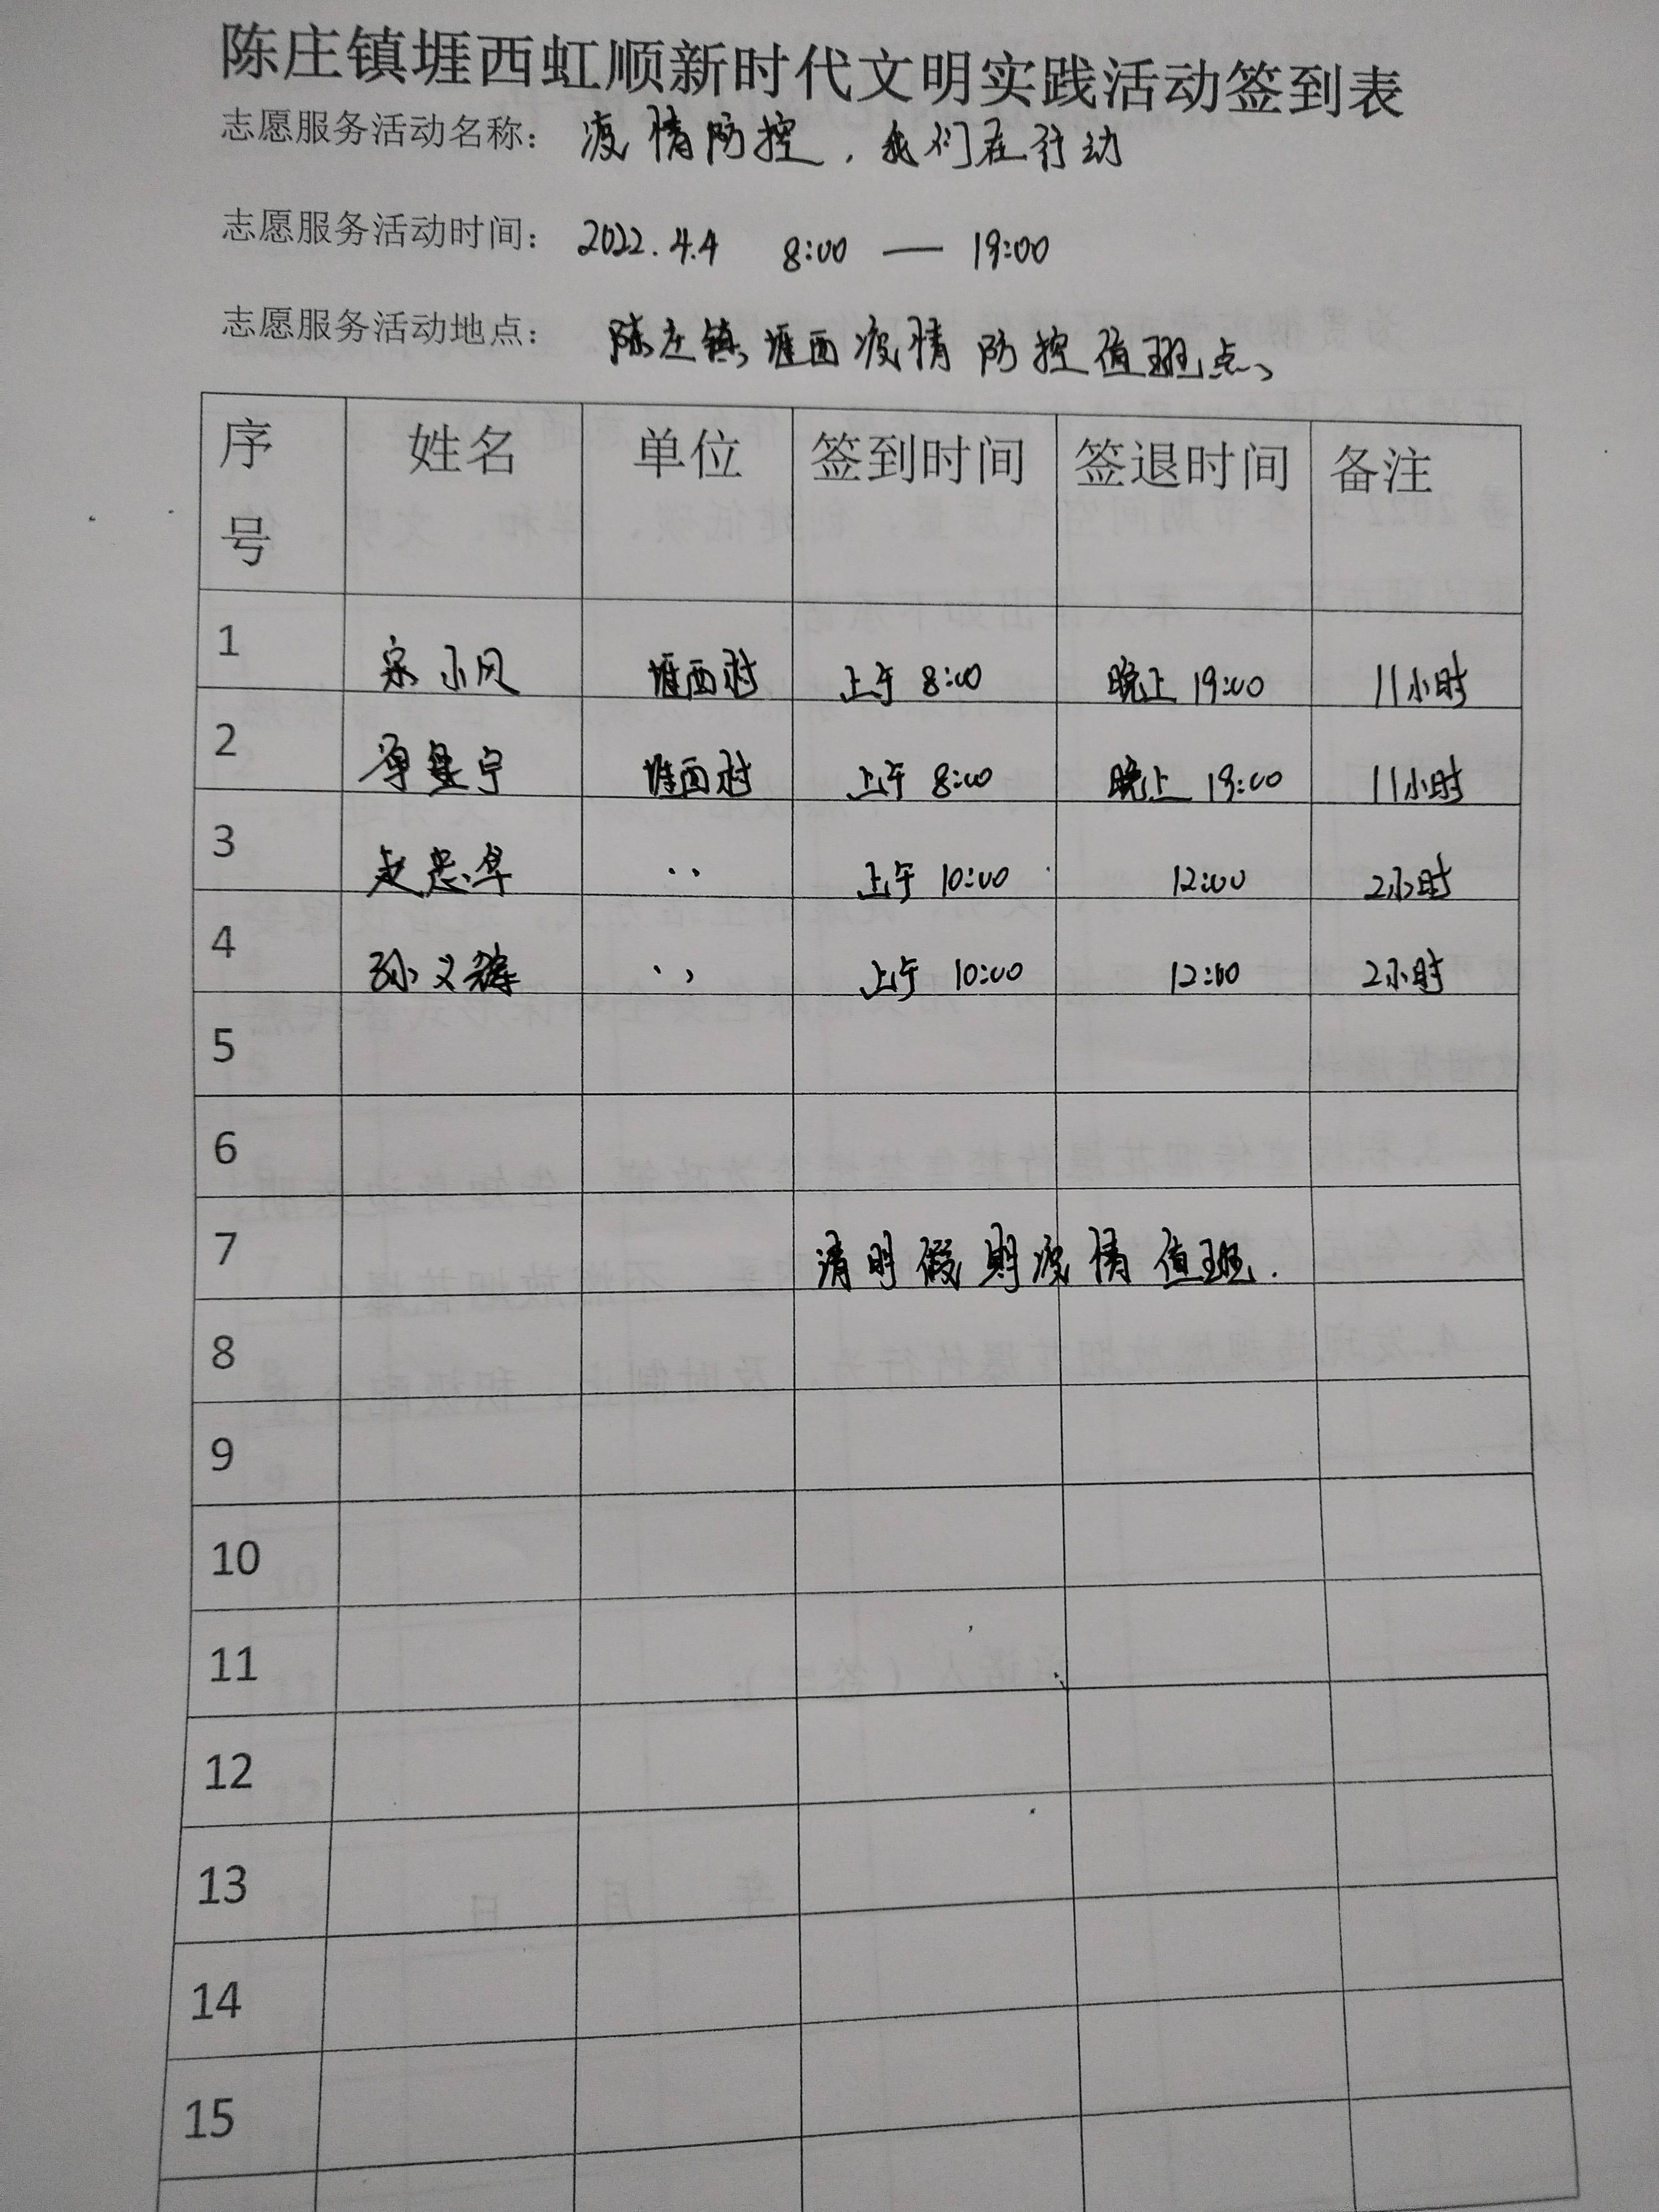 陈庄镇堐西虹顺新时代文明实践活动签到表
志愿服务活动名称： 疫情防控，我们在行动
志愿服务活动时间： 2022.4.4 8:00 — 19:00
志愿服务活动地点： 陈庄镇堐西疫情防控值班点
序号 姓名 单位 签到时间 签退时间 备注
1 宋小风 堐西村 上午 8:00 晚上 19:00 11小时
2 堐西村 上午 8:00 晚上 19:00 11小时
3 赵忠华 〃 上午 10:00 12:00 2小时
4 孙义 〃 上午 10:00 12:00 2小时
5
6
7 清明假期疫情值班.
8
9
10
11
12
13
14
15